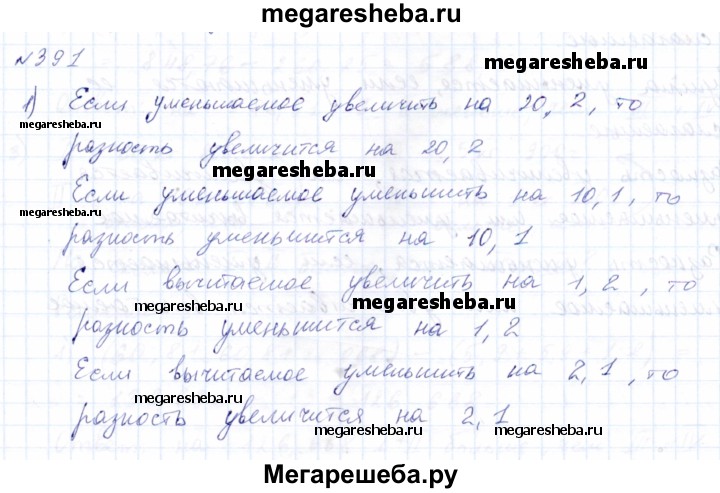 megaresheba.ru
№391
megaresheba.ru
1) Если уменьшаемое увеличить на 20,2, то
megaresheba.ru
разность увеличится на 20,2
megaresheba.ru
Если уменьшаемое уменьшить на 10,1, то
разность уменьшится на 10,1
Если вычитаемое увеличить на 1,2, то
megaresheba.ru megaresheba.ru
разность уменьшится на 1,2
Если вычитаемое уменьшить на 2,1, то
megaresheba.ru megaresheba.ru
разность увеличится на 2,1
Мегарешеба.ру